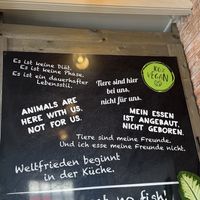 Es ist keine Diät.
Es ist keine Phase.
Es ist ein dauerhafter
Lebensstil.
Tiere sind hier
bei uns,
nicht für uns.
100%
VEGAN
ANIMALS ARE
HERE WITH US.
NOT FOR US.
MEIN ESSEN
IST ANGEBAUT.
NICHT GEBOREN.
Tiere sind meine Freunde.
Und ich esse meine Freunde nicht.
Weltfrieden beginnt
in der Küche.
no fish!